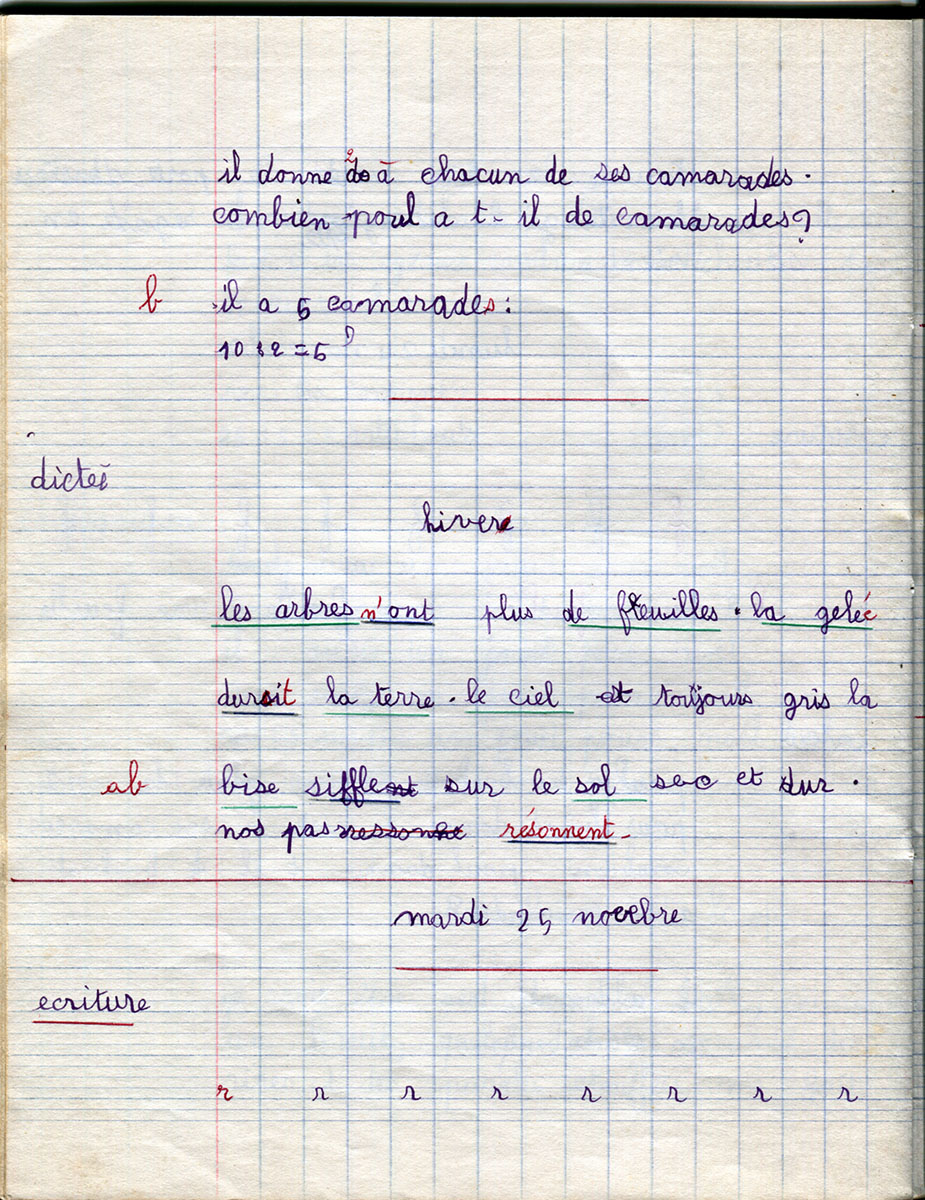 il donne 2 à chacun de ses camarades.
combien poul a t-il de camarades?
b il a 5 camarades:
10 : 2 = 5
dicteé
hiver
les arbres n'ont plus de feuilles. la geleé
durcit la terre. le ciel et toujours gris la
ab bise siffle sur le sol sec et dur.
nos pas résonnent.
mardi 25 novebre
ecriture
r r r r r r r r